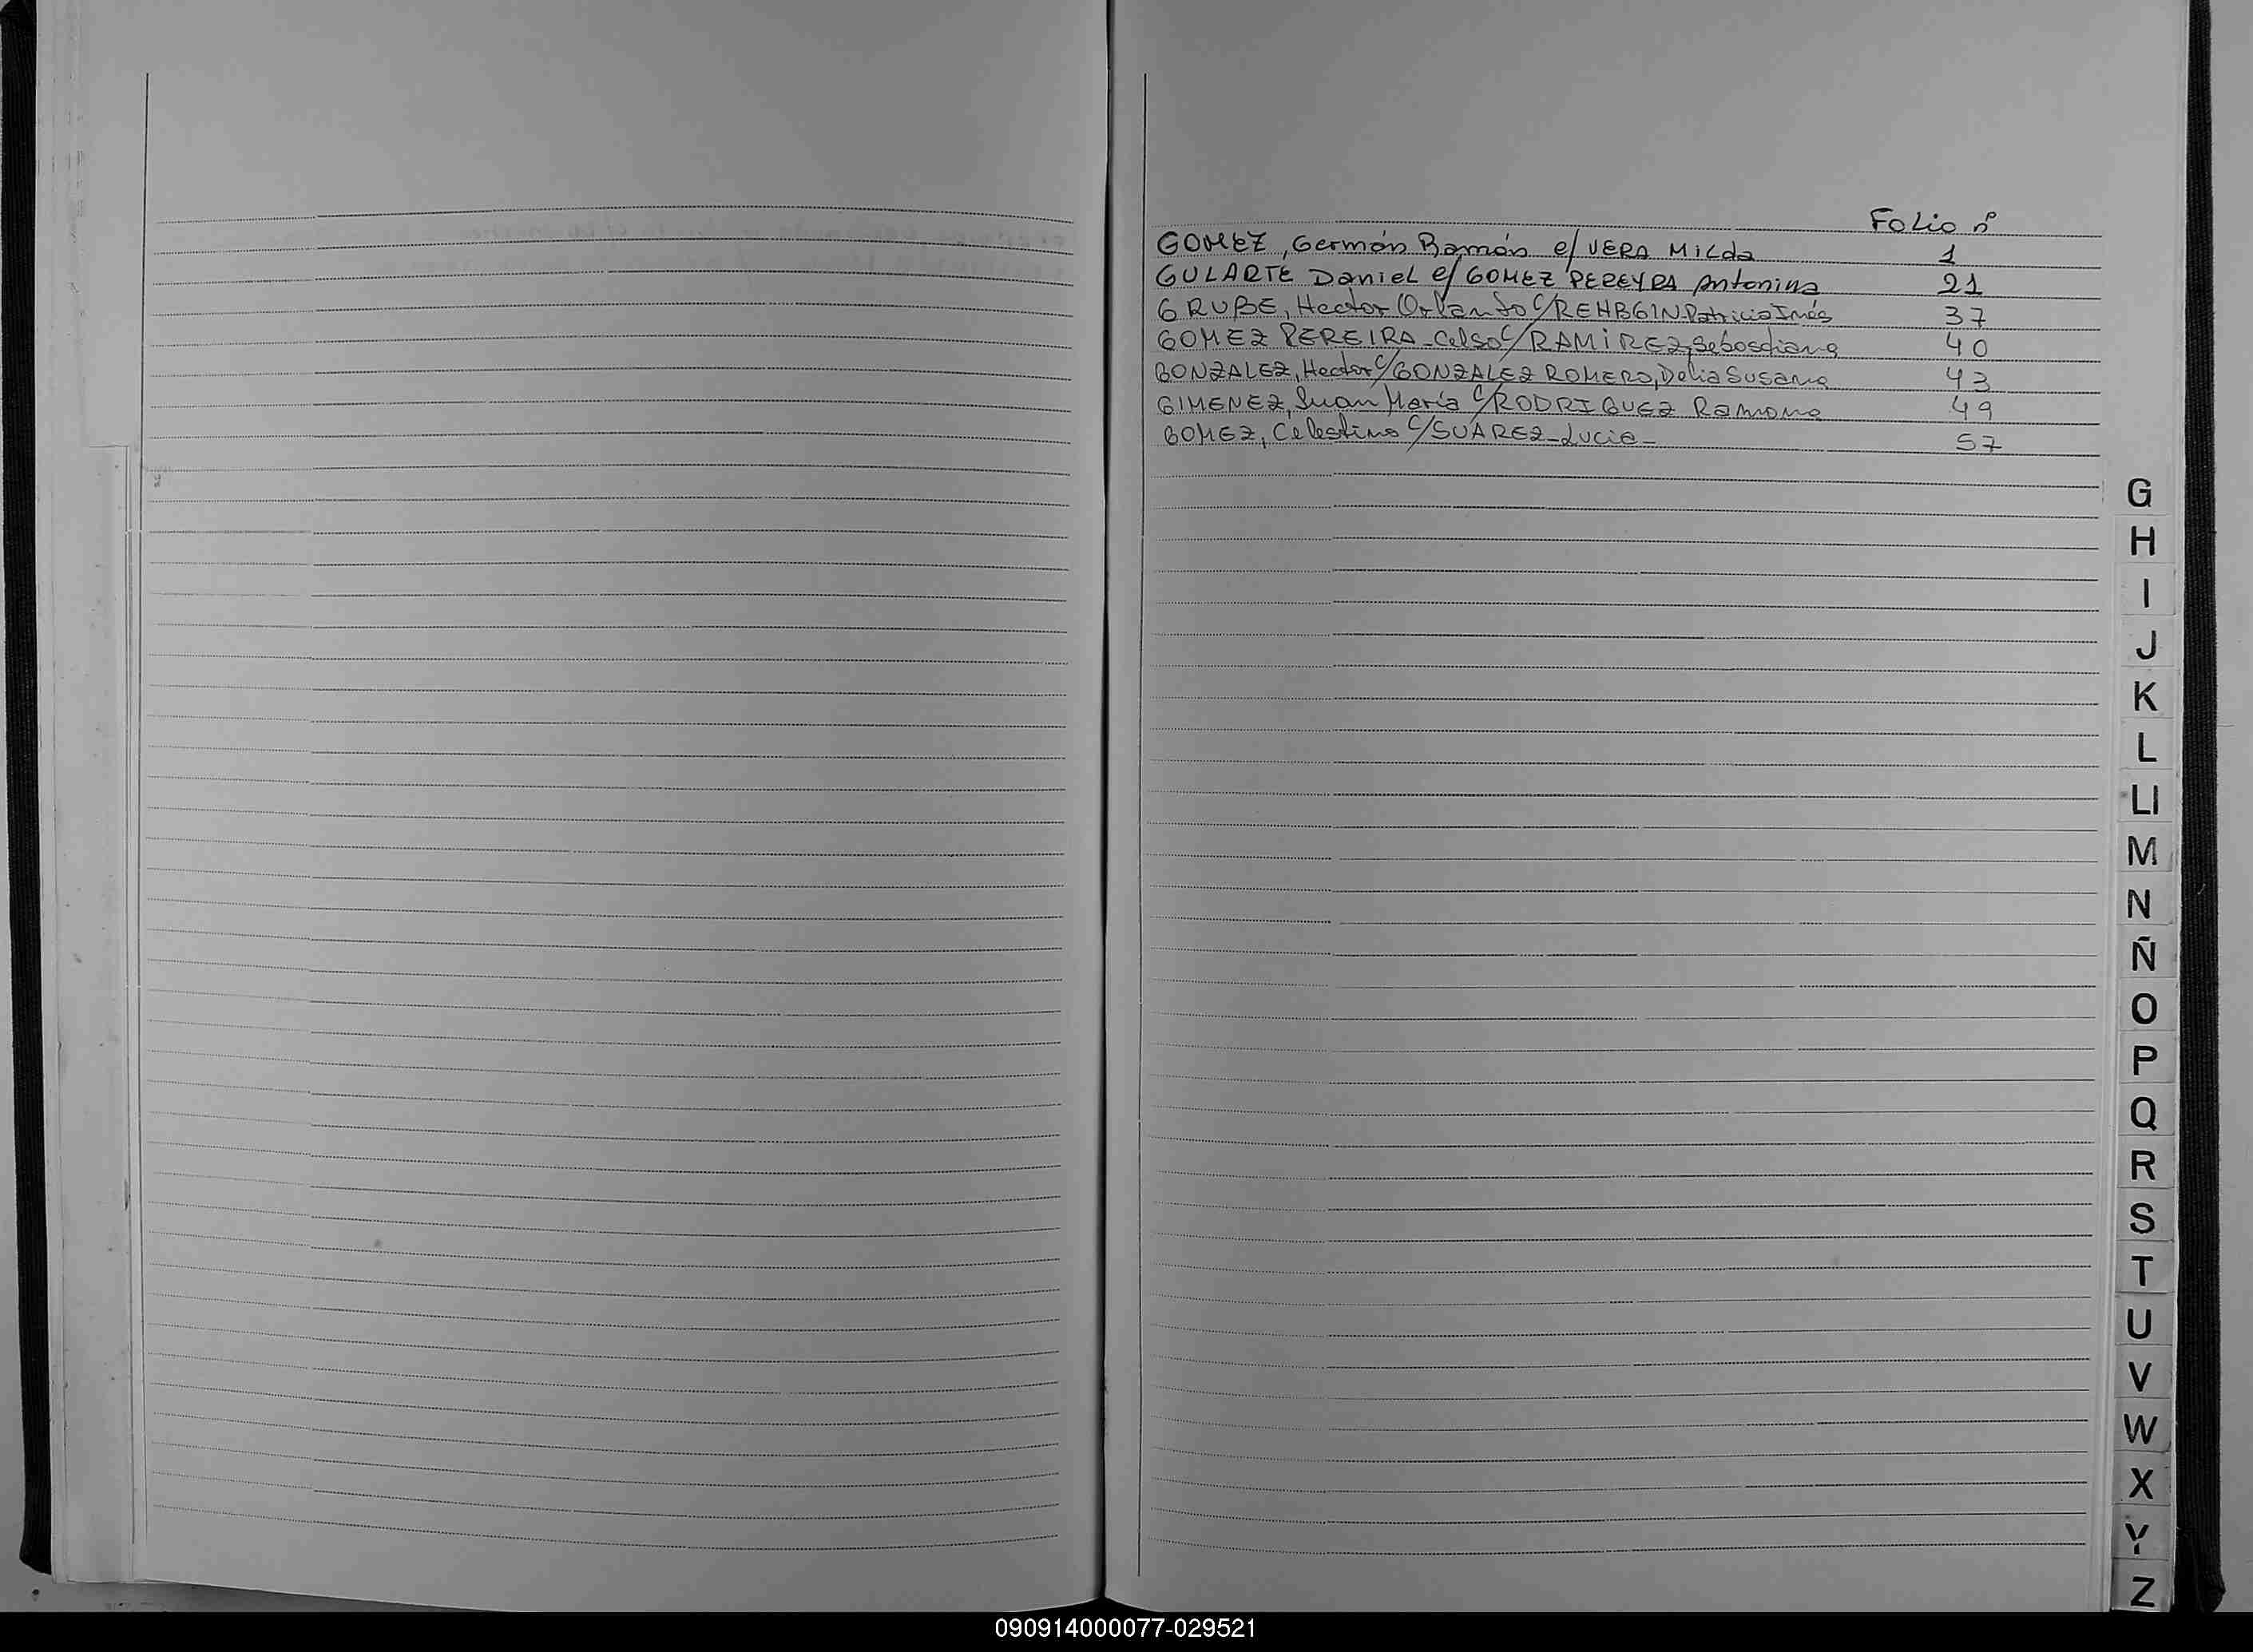 Folio nº
GOMEZ, Germán Ramón c/ VERA Milda 1
GULARTE Daniel c/ GOMEZ PEREYRA Antonina 21
GRUBE, Hector Orlando c/ REHBGIN Patricia Inés 37
GOMEZ PEREIRA - Celso c/ RAMIREZ, Sebastiana 40
GONZALEZ, Hector c/ GONZALEZ ROMERO, Delia Susana 43
GIMENEZ, Juan María c/ RODRIGUEZ Ramona 49
GOMEZ, Celestino c/ SUAREZ - Lucia - 57
G
H
I
J
K
L
Ll
M
N
Ñ
O
P
Q
R
S
T
U
V
W
X
Y
Z
090914000077-029521